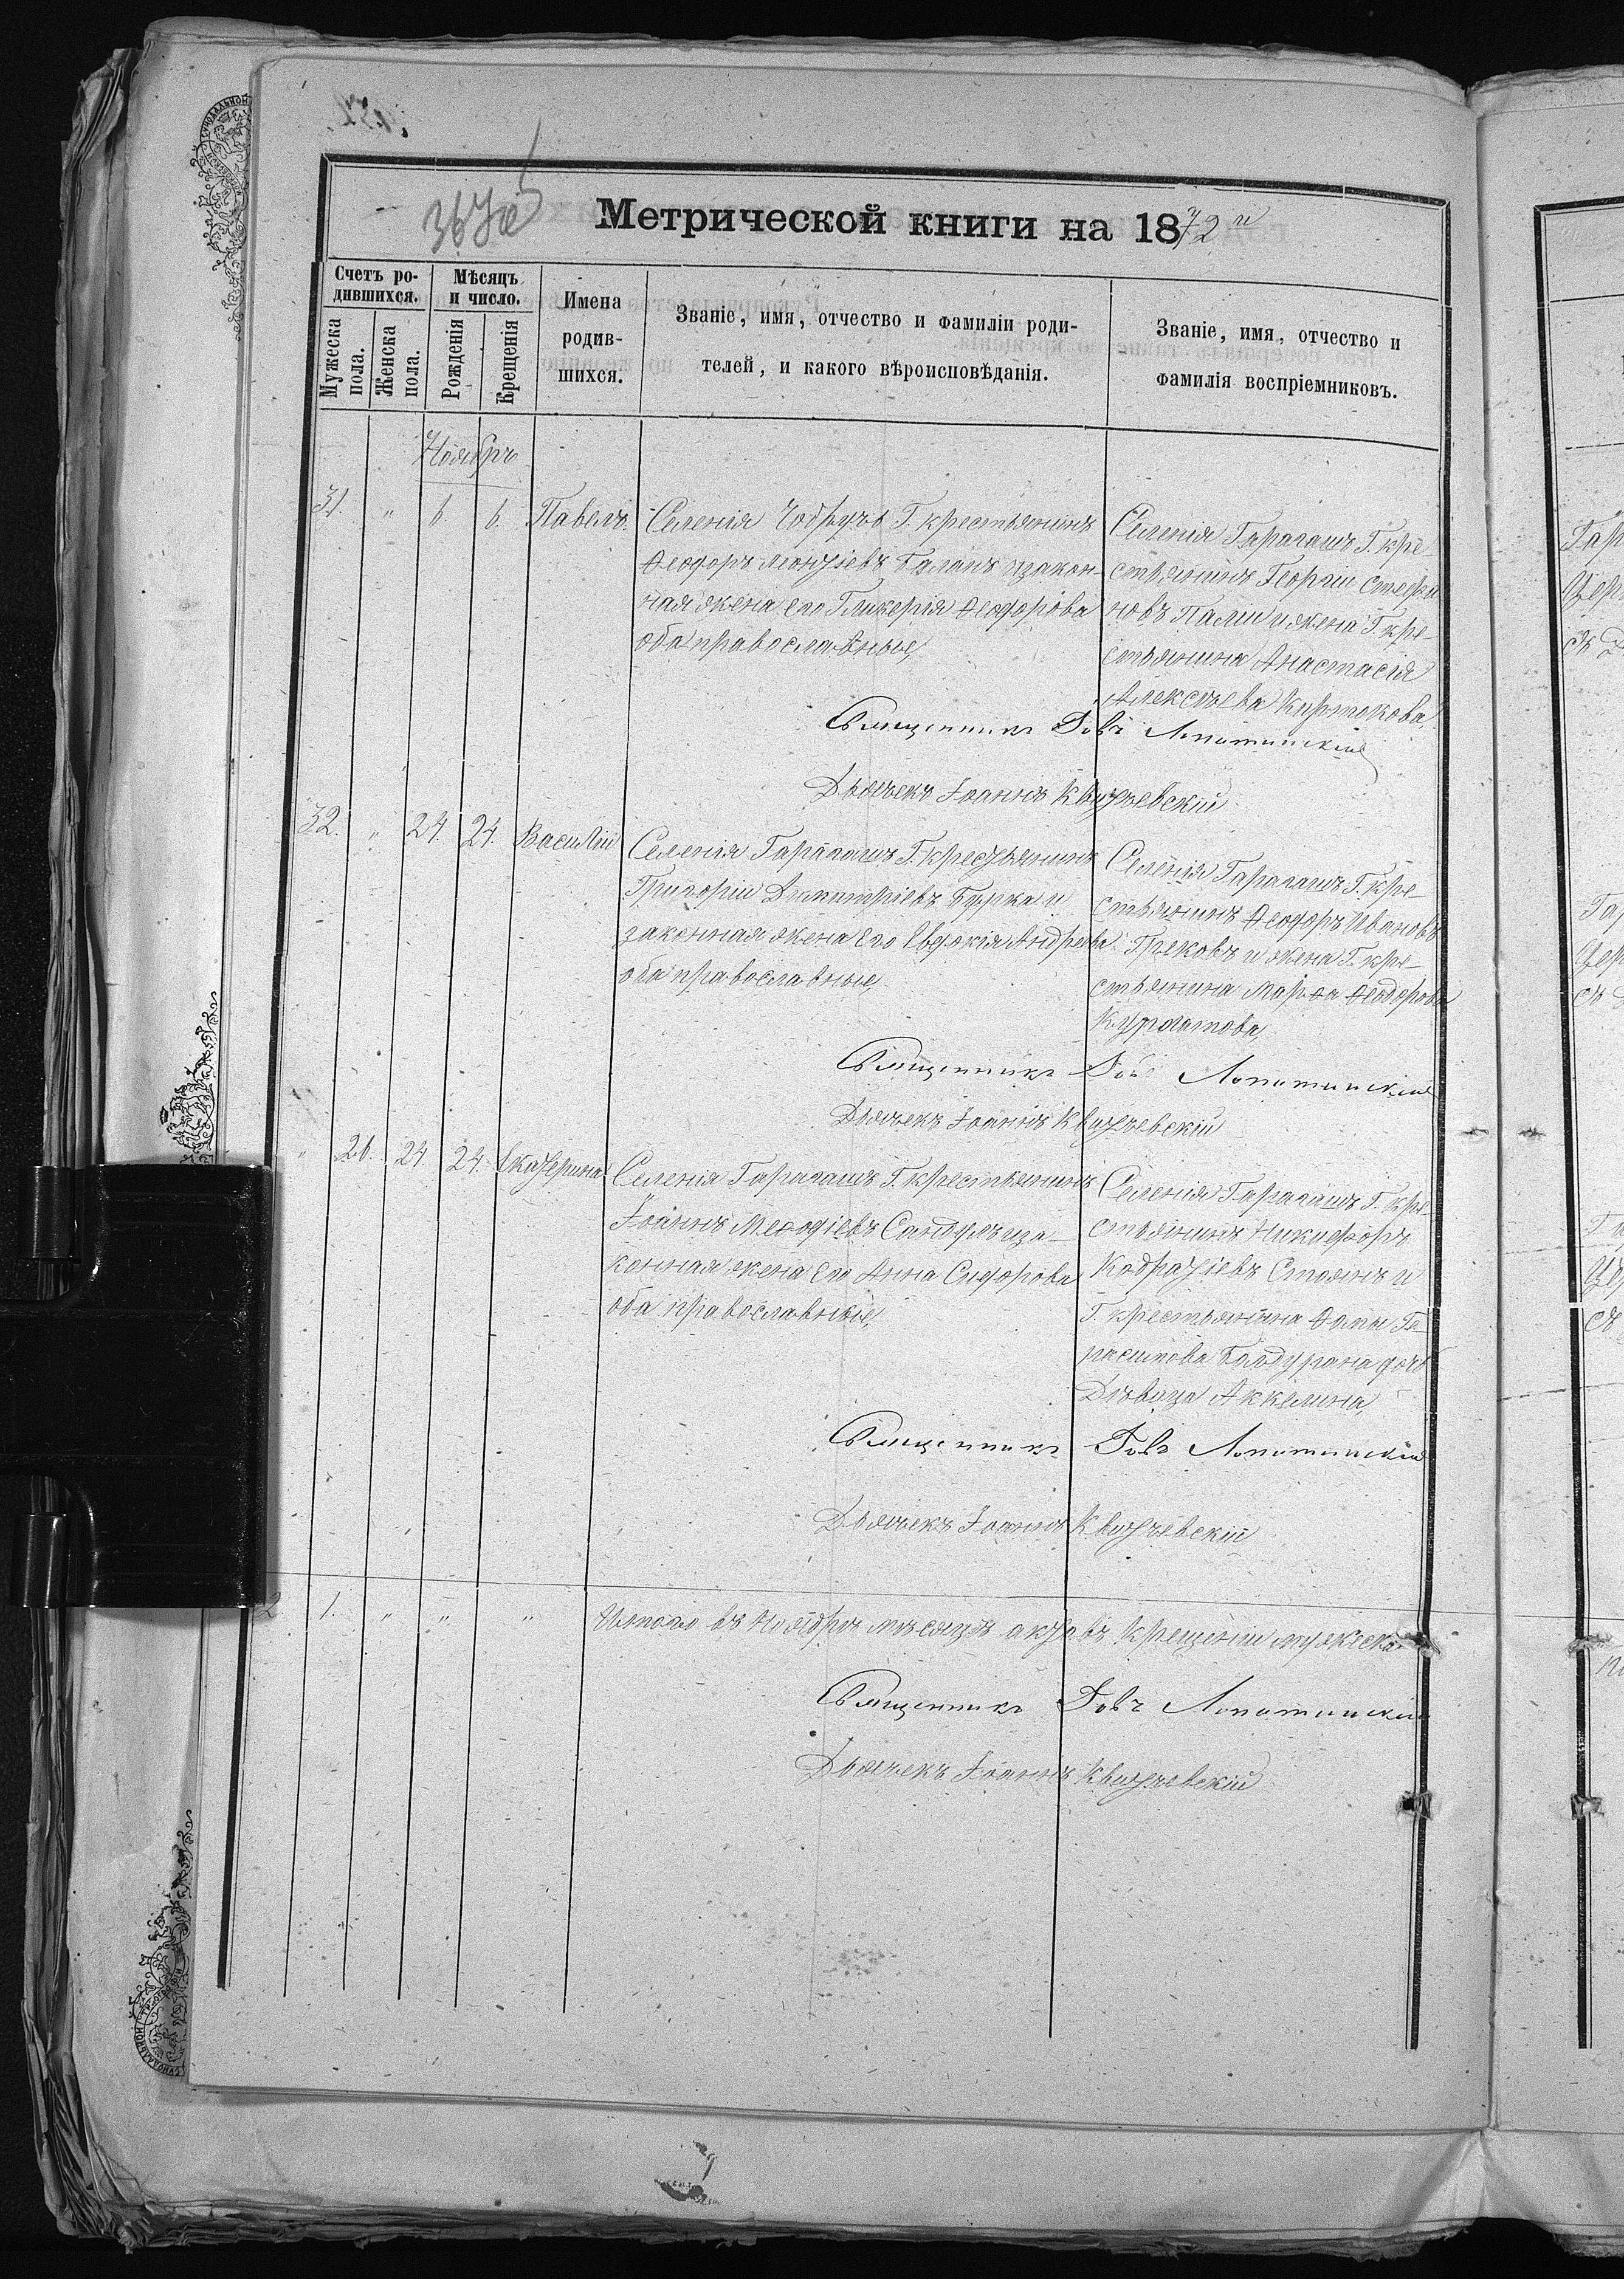 Метрической книги на 1872 и
Счетъ ро-
дившихся.
Мѣсяцъ
и число.
Мужеска
пола.
Женска
пола.
Рожденія
Крещенія
Имена
родив-
шихся.
Званіе, имя, отчество и фамиліи роди-
телей, и какого вѣроисповѣданія.
Званіе, имя, отчество и
фамилія воспріемниковъ.
Ноябрь
31. " 6. 6. Павелъ.
Селенія Чобручъ Г. крестьянинъ
Ѳеодоръ Леонтіевъ Баланъ изакон-
ная жена его Гликерія Ѳеодорова
оба православные,
Селенія Гарагашъ Г. кре-
стьянинъ Георгіи Стефа
новъ Пали и жена Г. кре-
стьянина Анастасія
Алексѣева
Священникъ Іовъ Лопатинскій
Дьячекъ Іоаннъ Квитѣевскій
32. " 24. 24. Василій
Селенія Гарагашъ Г. крестьянинъ
Григоріи Димитріевъ Бурка и
законная жена Его Евдокія Андреева
оба православные,
Селенія Гарагашъ Г. кре-
стьянинъ Ѳеодоръ Ивановъ
Грековъ и жена Г. кре-
стьянина Марѳа Ѳеодорова
Курлатова,
Священникъ Іовъ Лопатинскій
Дьячекъ Іоаннъ Квитѣевскій
" 26. 24 24. Екатерина
Селенія Гарагашъ Г. крестьянинъ
Іоаннъ Меѳодіевъ Сандулъ иза-
конная жена Его Анна Сидорова
оба православные,
Селенія Гарагашъ Г. кре-
стьянинъ Никифоръ
Кодратіевъ Стоянъ и
Г. крестьянина Ѳомы Ге-
расимова дочь
Дѣвица Аккелина,
Священникъ Іовъ Лопатинскій
Дьячекъ Іоаннъ Квитѣевскій
2 1. " " "
Итого въ Ноябрѣ мѣсяцѣ актовъ крещеніи мужеска
Священникъ Іовъ Лопатинскій
Дьячекъ Іоаннъ Квитѣевскій